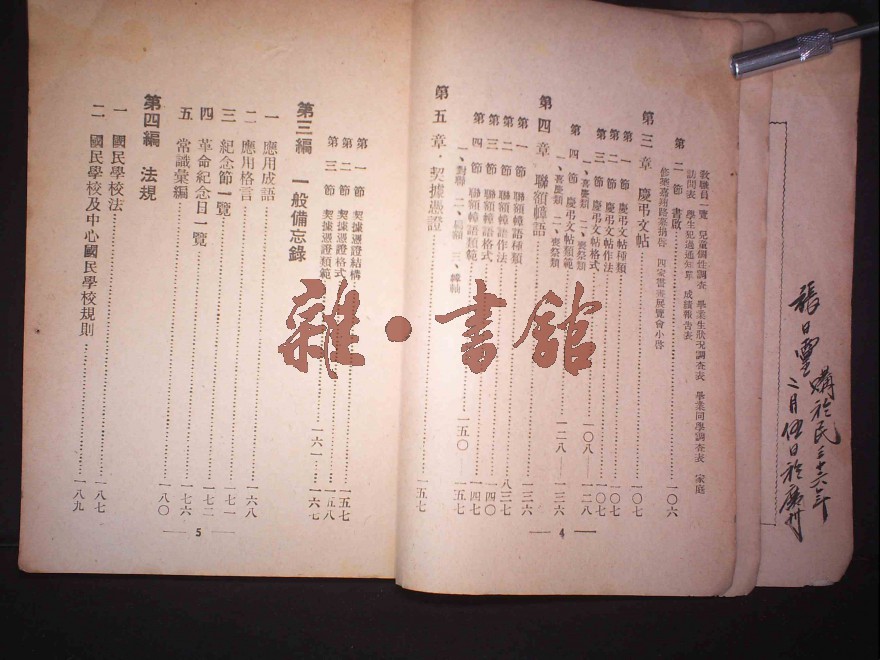 我職員一覽 兒童個性調查 畢業生狀況調查表 畢業同學調查表 家庭
訪問表 學生犯過通知單 成績報告表
第二節 書啟……一〇六
修築嘉通路募捐啓 四家書畫展覽會小啓
第三章 慶弔文帖……一〇七
第一節 慶弔文帖種類……一〇七
第二節 慶弔文帖作法……一〇七
第三節 慶弔文帖格式……一〇七
一、喜慶類 二、喪祭類……一〇八——一二八
第四節 慶弔文帖類範……一二八——一三六
一、喜慶類 二、喪祭類
第四章 聯額幛語……一三六
第一節 聯額幛語種類
第二節 聯額幛語作法……八三七
第三節 聯額幛語格式……一四〇
第四節 聯額幛語類範……一四七
一、對聯 二、 三、……一五〇——一五七
第五章 契據憑證……一五七
4
第一節 契據憑證結構……一五七
第二節 契據憑證格式……一五八
第三節 契據憑證類範……一六一——一六七
第三編 一般備忘錄
一 應用成語
二 應用格言……一六八
三 紀念節一覽……一七一
四 革命紀念日一覽……一七二
五 常識彙編……一七六
第四編 法規……一八〇
一 國民學校法……一八七
二 國民學校及中心國民學校規則……一八九
5
張日靈 購於民三十六年
二月伍日於廣州
雜·書館